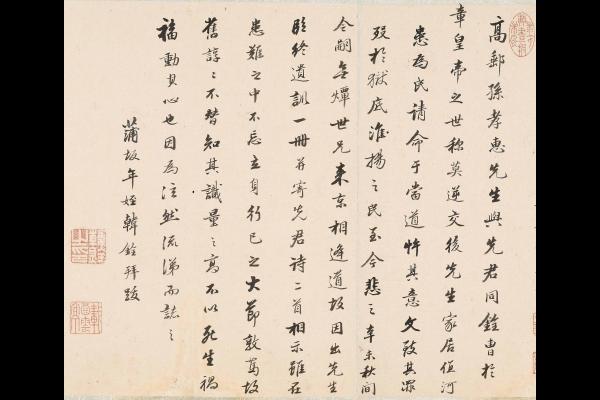 高郵孫孝惠先生與先君同銓曹於
章皇帝之世称莫逆交後先生家居值河
患為民請命于當道忤其意文致其罪
歿於獄底淮揚之民至今悲之辛未秋間
令嗣煇世兄来京相逢道故因出先生
臨終遺訓一冊并寄先君詩二首相示雖在
患難之中不忘立身行已之大節敦篤故
舊諄〻不替知其識量之高不以死生禍
福動其心也因為泫然流涕而誌之
蒲坂年姪韓銓拜跋